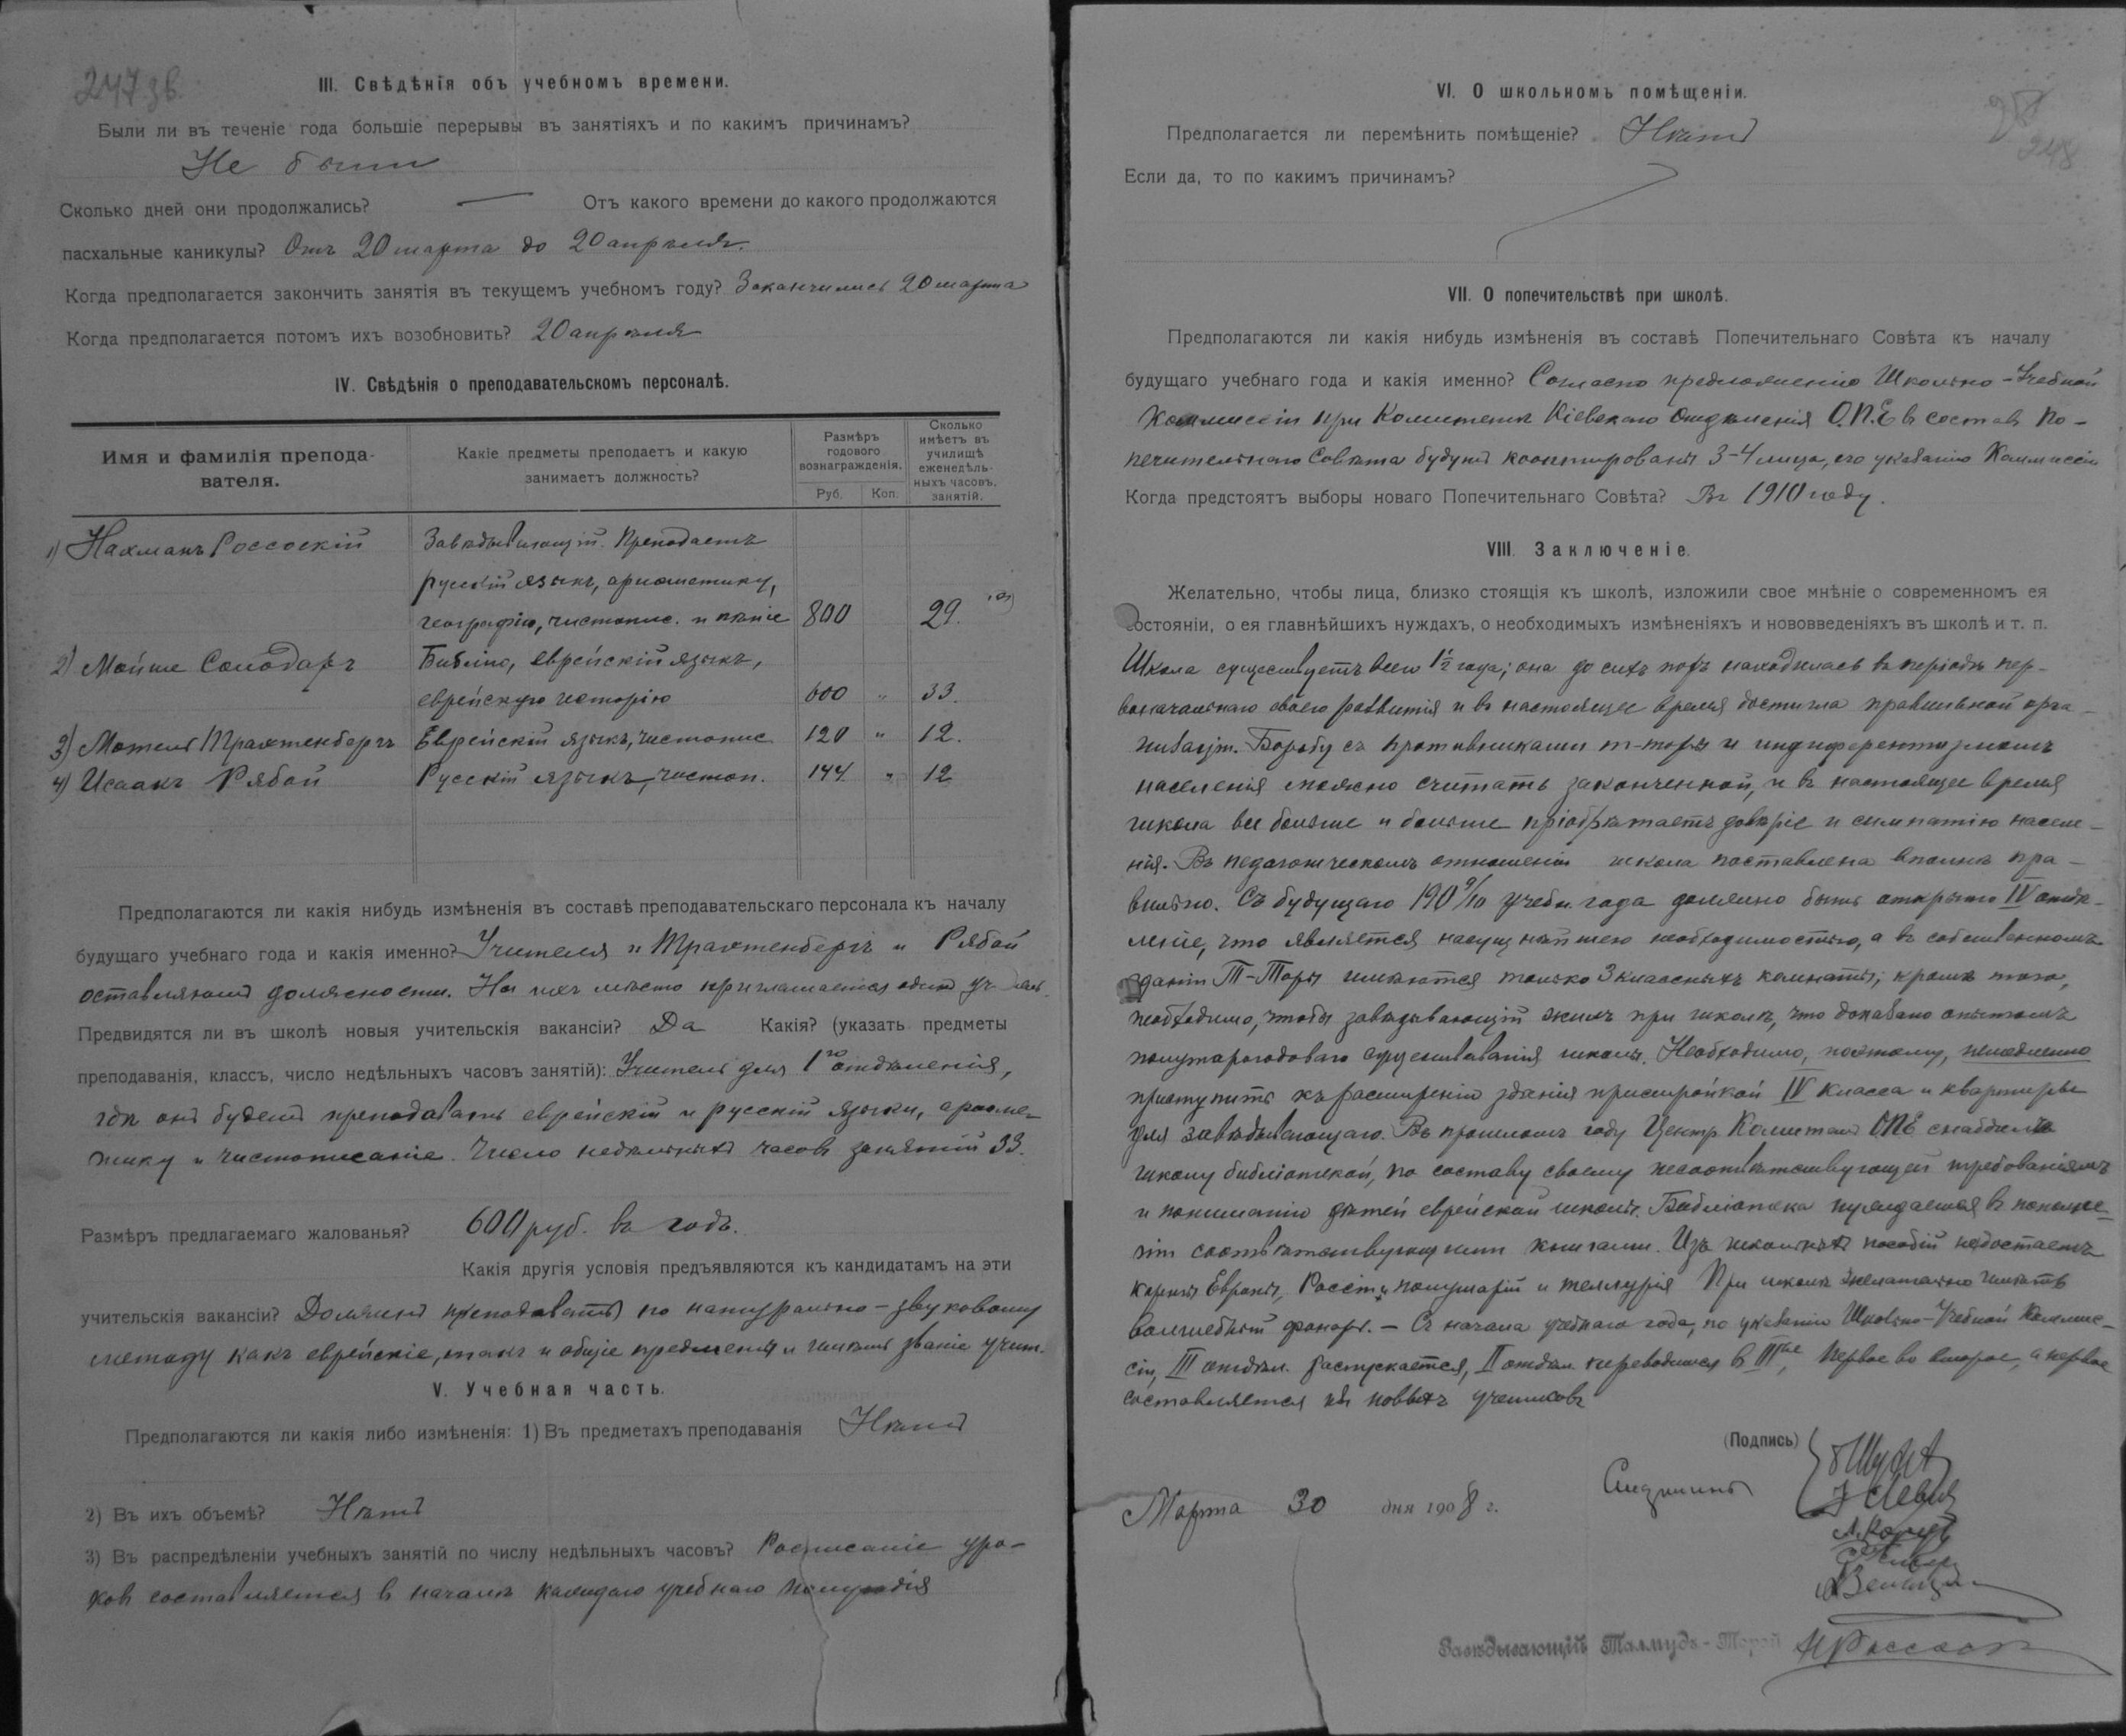 247 зв.
III. Свѣдѣнія объ учебномъ времени.
Были ли въ теченіе года большіе перерывы въ занятіяхъ и по какимъ причинамъ?
Не были
Сколько дней они продолжались? — Отъ какого времени до какого продолжаются
пасхальные каникулы? Отъ 20 марта до 20 апрѣля.
Когда предполагается закончить занятія въ текущемъ учебномъ году? Закончились 20 марта
Когда предполагается потомъ ихъ возобновить? 20 апрѣля
IV. Свѣдѣнія о преподавательскомъ персоналѣ.
Имя и фамилія препода-
вателя.
Какіе предметы преподаетъ и какую
занимаетъ должность?
Размѣръ
годового
вознагражденія.
Руб. Коп.
Сколько
имѣетъ въ
училищѣ
еженедѣль-
ныхъ часовъ
занятій.
1) Нахманъ Россоскій Завѣдывающій. Преподаетъ
русскій языкъ, ариѳметику,
географію, чистопис. и пѣніе 800 29.
2) Мойше Солодарь Библію, еврейскій языкъ,
еврейскую исторію 600 " 33.
3) Мотель Трахтенбергъ Еврейскій языкъ, чистопис 120 " 12.
4) Исаакъ Рябой Русскій языкъ, чистоп. 144 " 12
Предполагаются ли какія нибудь измѣненія въ составѣ преподавательскаго персонала къ началу
будущаго учебнаго года и какія именно? Учителя и Трахтенбергъ и Рябой
оставляютъ должности. На ихъ мѣсто приглашается одинъ
Предвидятся ли въ школѣ новыя учительскія вакансіи? Да Какія? (указать предметы
преподаванія, классъ, число недѣльныхъ часовъ занятій): Учитель для 1го отдѣленія,
гдѣ онъ будетъ преподавать еврейскій и русскій языки, ариѳме-
тику и чистописаніе. Число недѣльныхъ часовъ занятій 33.
Размѣръ предлагаемаго жалованья? 600 руб. въ годъ.
Какія другія условія предъявляются къ кандидатамъ на эти
учительскія вакансіи? Долженъ преподавать по натурально-звуковому
методу какъ еврейскіе, такъ и общіе предметы и имѣть званіе учит.
V. Учебная часть.
Предполагаются ли какія либо измѣненія: 1) Въ предметахъ преподаванія Нѣтъ
2) Въ ихъ объемѣ? Нѣтъ
3) Въ распредѣленіи учебныхъ занятій по числу недѣльныхъ часовъ? Росписаніе уро-
ковъ составляется въ началѣ каждаго учебнаго полугодія
248
VI. О школьномъ помѣщеніи.
Предполагается ли перемѣнить помѣщеніе? Нѣтъ
Если да, то по какимъ причинамъ?
VII. О попечительствѣ при школѣ.
Предполагаются ли какія нибудь измѣненія въ составѣ Попечительнаго Совѣта къ началу
будущаго учебнаго года и какія именно? Согласно предложенію Школьно-Учебной
Коммиссіи при Комитетѣ Кіевскаго Отдѣленія О.П.Е въ составъ По-
печительнаго Совѣта будутъ кооптированы 3-4 лица, по указанію Коммиссіи
Когда предстоятъ выборы новаго Попечительнаго Совѣта? Въ 1910 году.
VIII. Заключеніе.
Желательно, чтобы лица, близко стоящія къ школѣ, изложили свое мнѣніе о современномъ ея
состояніи, о ея главнѣйшихъ нуждахъ, о необходимыхъ измѣненіяхъ и нововведеніяхъ въ школѣ и т. п.
Школа существуетъ всего 1½ года; она до сихъ поръ находилась въ періодѣ пер-
воначальнаго своего развитія и въ настоящее время достигла правильной орга-
низаціи. Борьбу съ противниками т-торы и индиферентизмомъ
населенія можно считать законченной, и въ настоящее время
школа все больше и больше пріобрѣтаетъ довѣріе и симпатію населе-
нія. Въ педагогическомъ отношеніи школа поставлена вполнѣ пра-
вильно. Съ будущаго 190 9/10 учебн. года должно быть открыто IV отдѣ-
леніе, что является насущнѣйшею необходимостью, а въ собственномъ
зданіи Т-Торы имѣются только 3 классныхъ комнаты; кромѣ того,
необходимо, чтобы завѣдывающій жилъ при школѣ, что доказано опытомъ
полуторогодоваго существованія школы. Необходимо, поэтому, немедленно
приступить къ расширенію зданія пристройкой IV класса и квартиры
для завѣдывающаго. Въ прошломъ году Центр. Комитетъ ОПЕ снабдилъ
школу библіотекой, по составу своему несоотвѣтствующей требованіямъ
и пониманію дѣтей еврейской школы. Библіотека нуждается въ пополне-
ніи соотвѣтствующими книгами. Изъ школьныхъ пособій недостаетъ
карты Европы, Россіи, полушарій и теллурія При школѣ желательно имѣть
волшебный фонарь. — Съ начала учебнаго года, по указанію Школьно-Учебной Коммис-
сіи, III отдѣл. распускается, II отдѣл. переводится въ IIIье, первое во второе, а первое
составляется изъ новыхъ учениковъ
(Подпись)
Марта 30 дня 1908 г.
Завѣдывающій Талмудъ-Торой